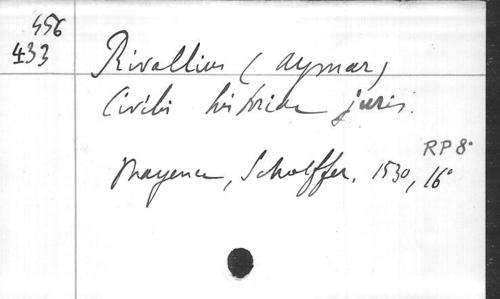 456
433
Rivallius (Aymar)
Civilis historiae juris.
RP 8°
Mayence, Schoeffer, 1530, 16°